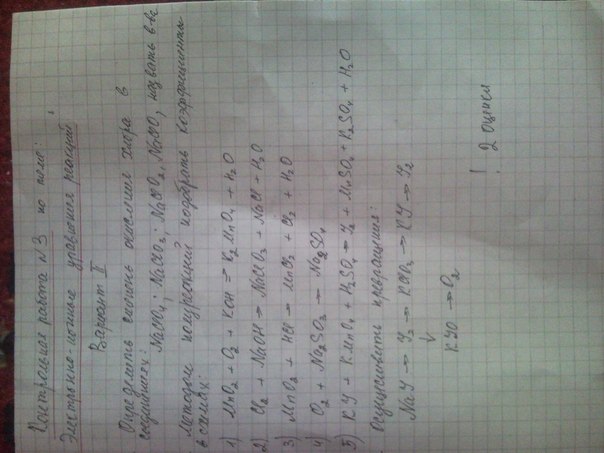 Контрольная работа №3 по теме:
Электронно-ионные уравнения реакций
Вариант II
Определить степень окисления хлора в
соединениях: NaClO4; NaClO3; NaClO2, NaClO, назвать в-ва
Методом полуреакций подобрать коэффициенты
в схемах:
1) MnO2 + O2 + KOH → K2MnO4 + H2O
2) Cl2 + NaOH → NaClO3 + NaCl + H2O
3) MnO2 + HCl → MnCl2 + Cl2 + H2O
4) O2 + Na2SO3 → Na2SO4
5) KY + KMnO4 + H2SO4 → Y2 + MnSO4 + K2SO4 + H2O
Осуществить превращения:
NaY → Y2 → KYO3 → KY → Y2
↓
KYO → O2
! 2 оценки